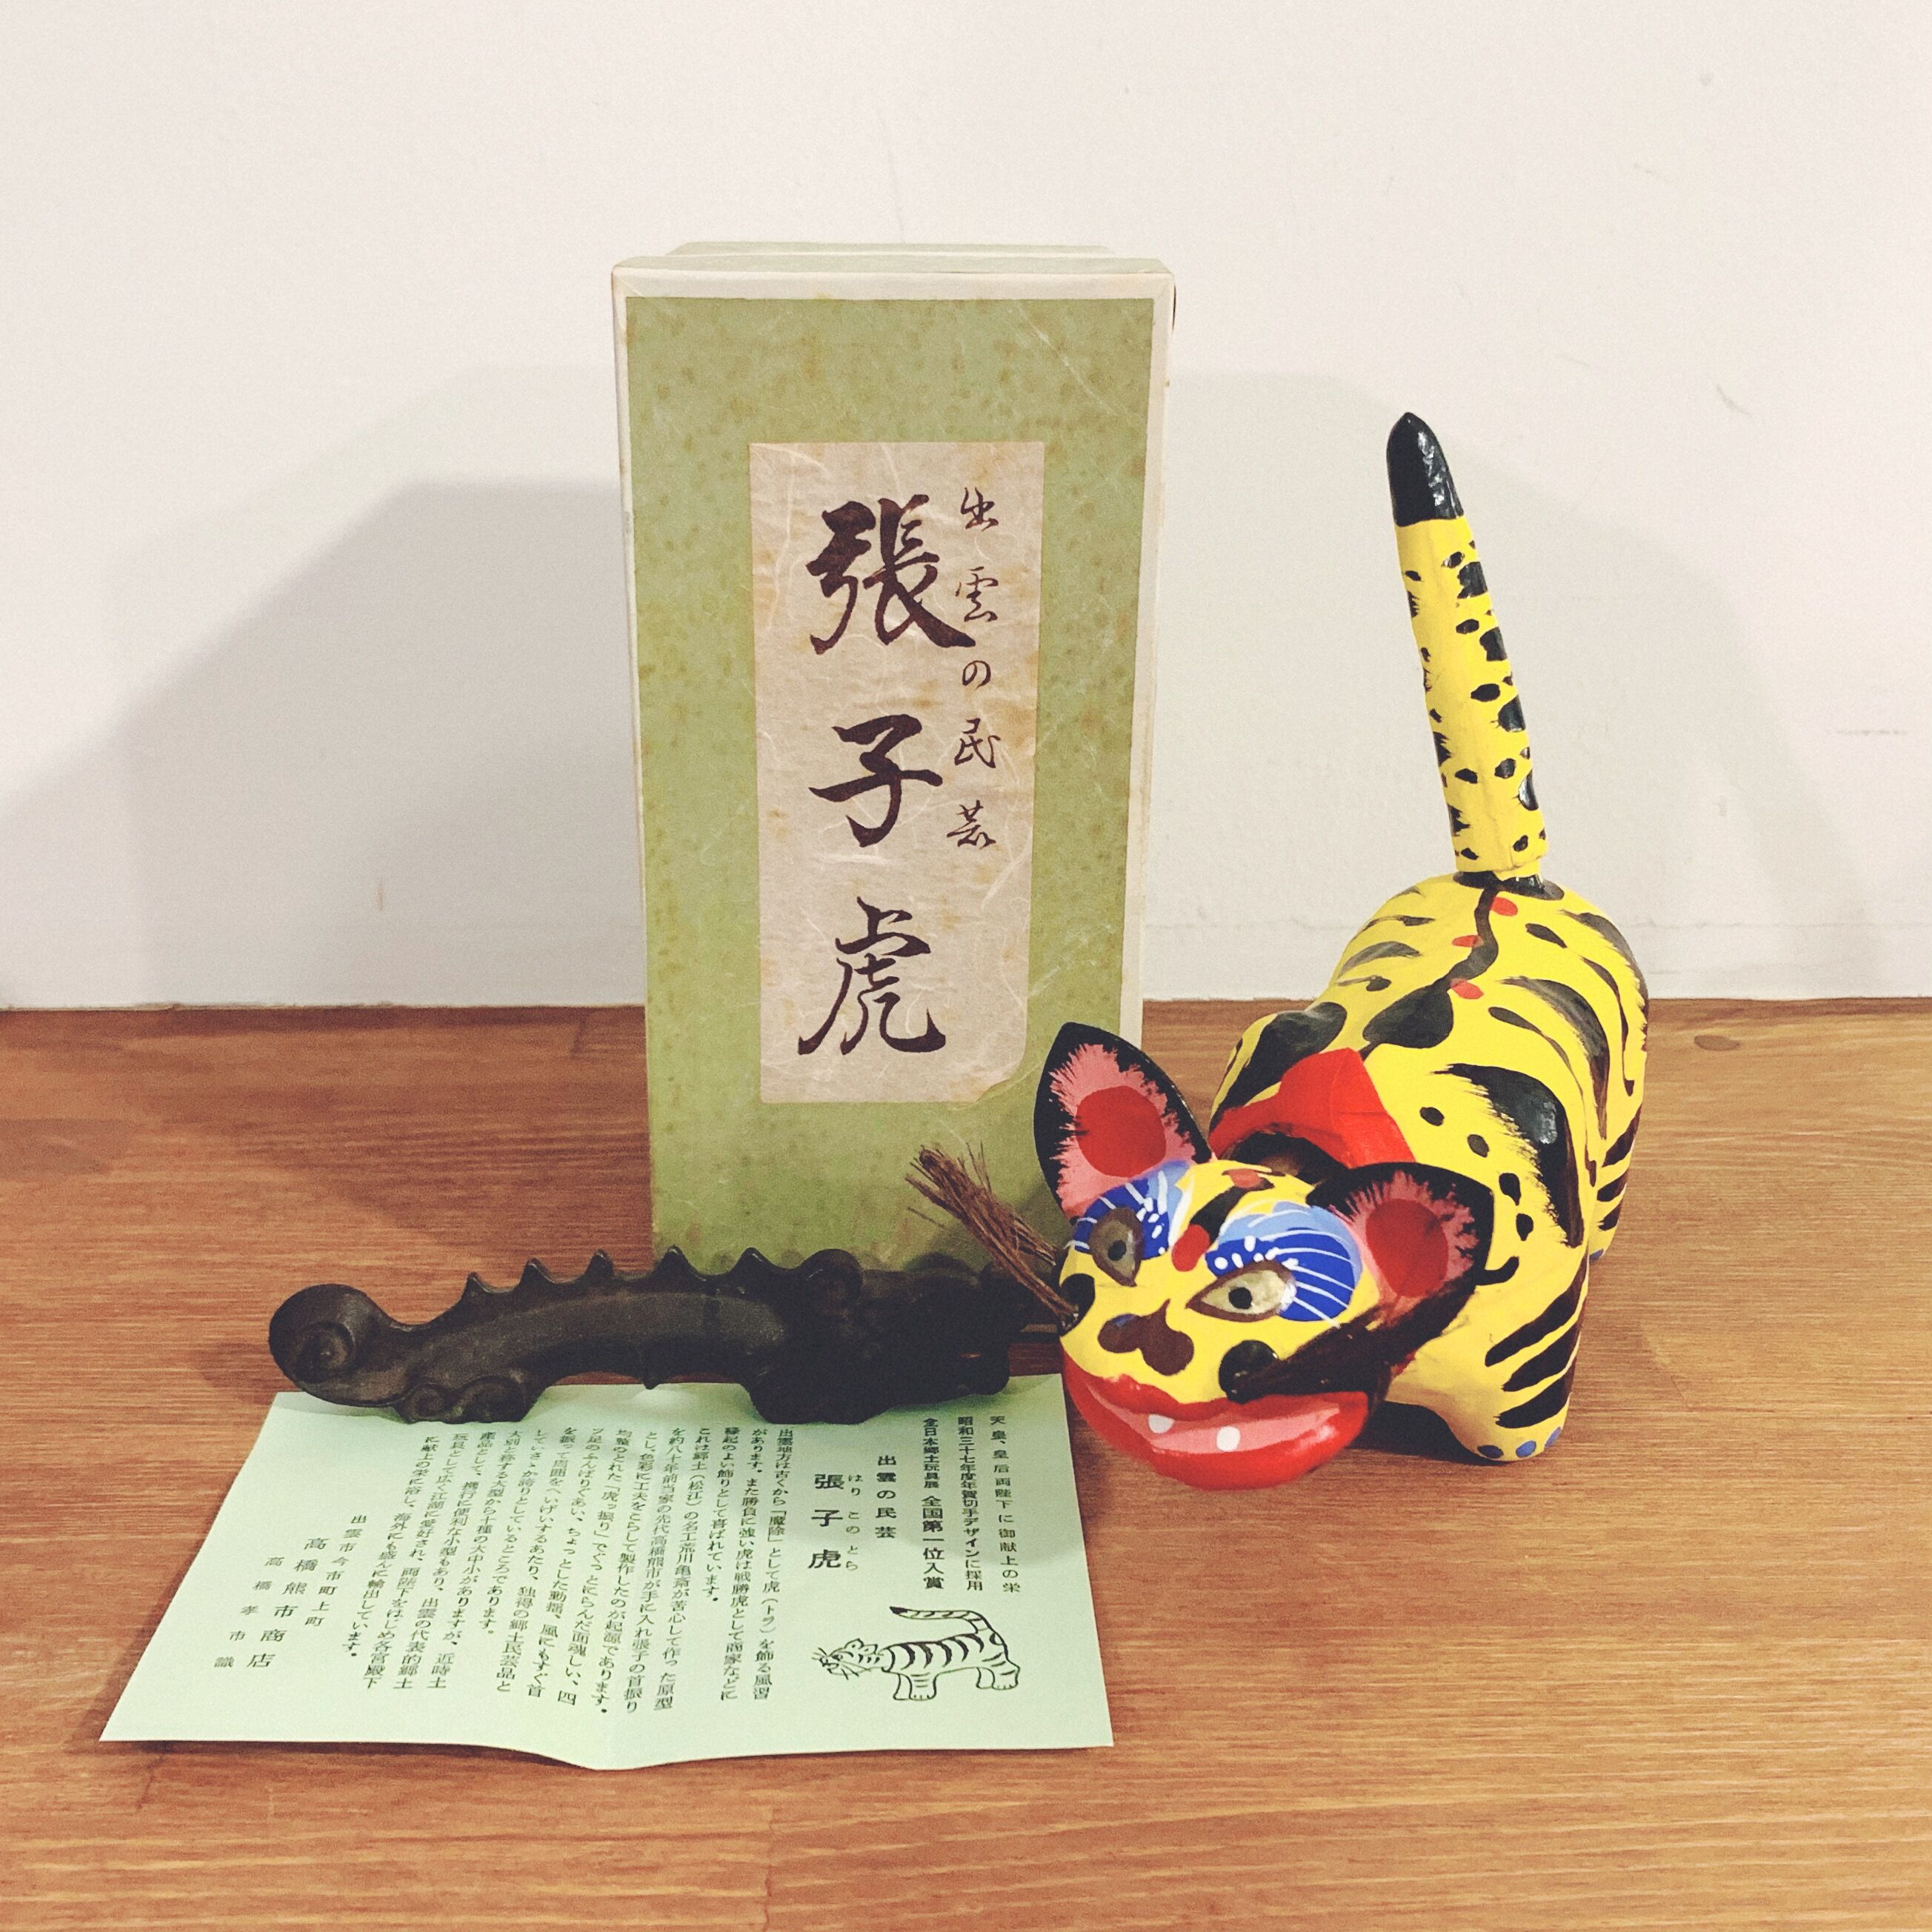 出雲の民芸
張子虎
天皇、皇后両陛下に御献上の栄
昭和三十七年度年賀切手デザインに採用
全日本郷土玩具展 全国第一位入賞
出雲の民芸
はりこのとら
張子虎
出雲地方は古くから「魔除」として虎(トラ)を飾る風習
があります。また勝負に強い虎は戦勝虎として商家などに
縁起のよい飾りとして喜ばれています。
これは郷土(松江)の名工荒川亀斎が苦心して作った原型
を約八十年前当家の先代高橋熊市が手に入れ張子の首振り
とし、色彩に工夫をこらして製作したのが起源であります。
均整のとれた「虎ッ振り」でぐっとにらんだ面魂しい、四
ツ足のふんばりぐあい、ちょっとした動揺、風にもすぐ首
を振って周囲をへいげいするあたり、独得の郷土民芸品と
していさゝか誇りとしているところであります。
大別と称する大型から十種の大中小がありますが、近時土
産品として、携行に便利な小型もあり、出雲の代表的郷土
玩具として広く江湖に愛好され、両陛下をはじめ各宮殿下
に献上の栄に浴し、海外にも盛んに輸出しています。
出雲市今市町上町
高橋熊市商店
高橋孝市識